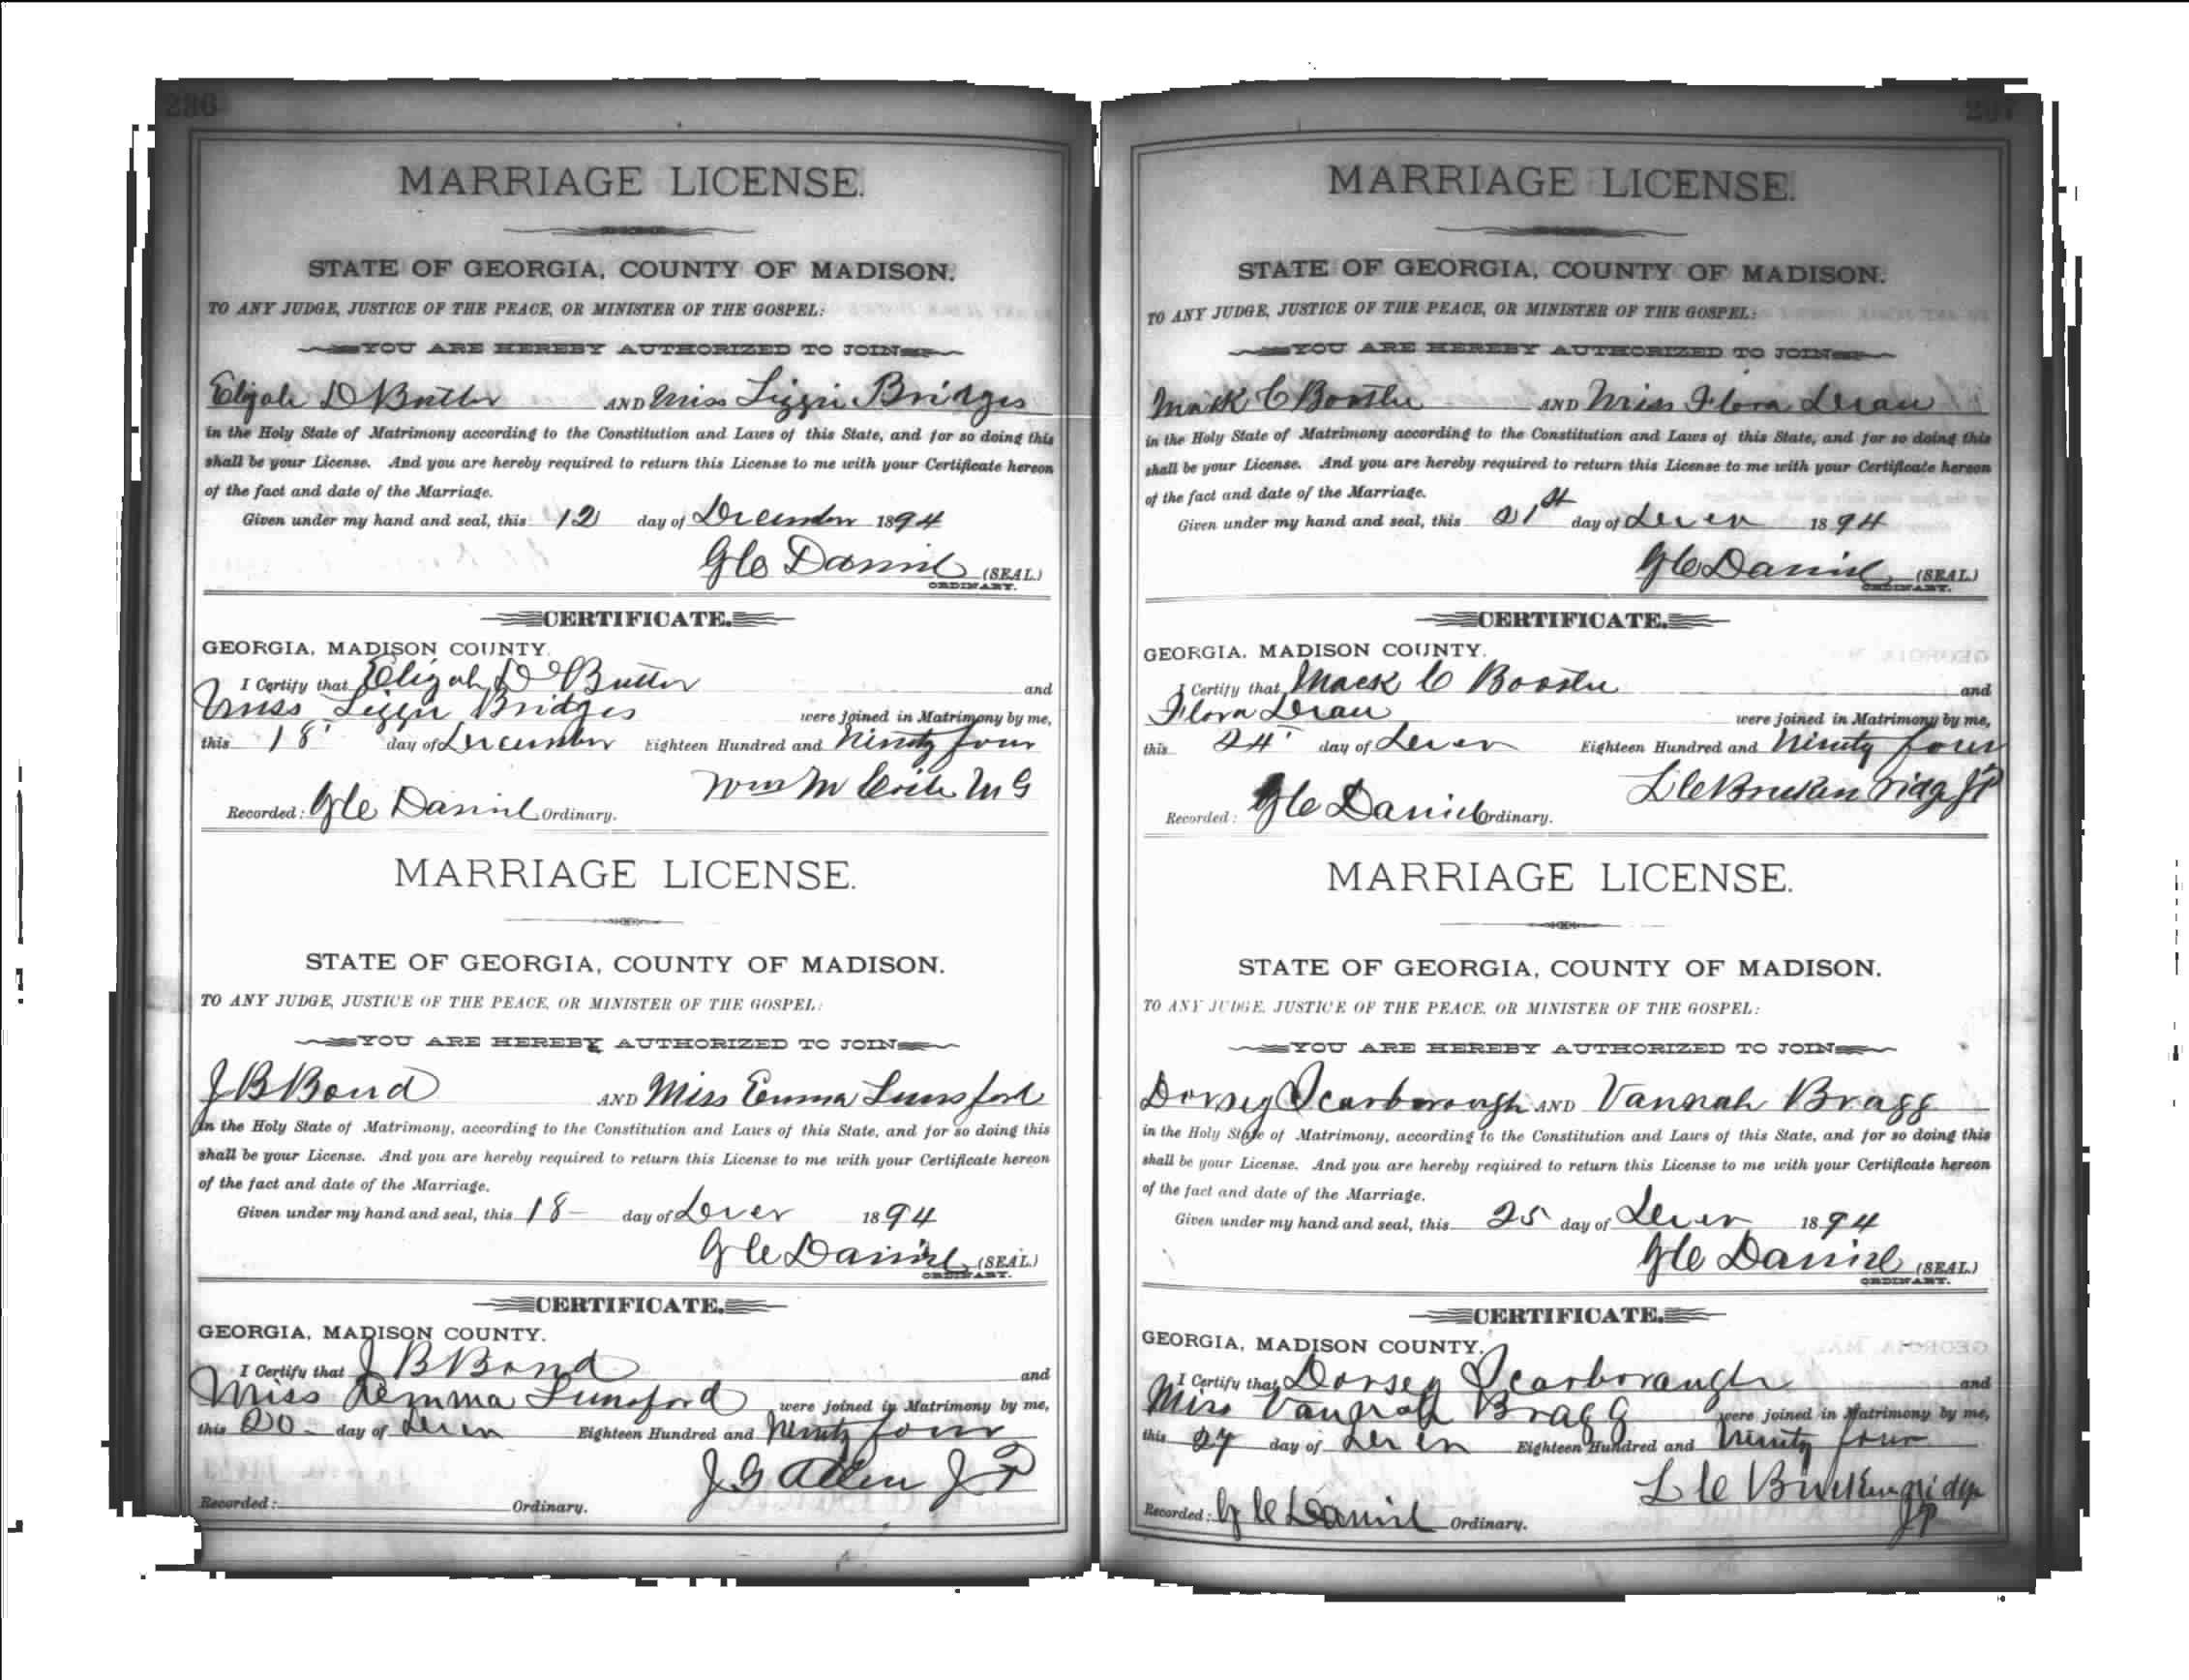 236
MARRIAGE LICENSE.
STATE OF GEORGIA, COUNTY OF MADISON.
TO ANY JUDGE, JUSTICE OF THE PEACE, OR MINISTER OF THE GOSPEL:
YOU ARE HEREBY AUTHORIZED TO JOIN
Elijah D Butler AND Miss Lizzie Bridges
in the Holy State of Matrimony according to the Constitution and Laws of this State, and for so doing this
shall be your License. And you are hereby required to return this License to me with your Certificate hereon
of the fact and date of the Marriage.
Given under my hand and seal, this 12 day of December 1894
G C Daniel (SEAL)
ORDINARY.
CERTIFICATE.
GEORGIA, MADISON COUNTY.
I Certify that Elizah D Butler and
Miss Lizzie Bridges were joined in Matrimony by me,
this 18 day of December Eighteen Hundred and Ninety four
Wm M M G
Recorded: G C Daniel Ordinary.
MARRIAGE LICENSE.
STATE OF GEORGIA, COUNTY OF MADISON.
TO ANY JUDGE, JUSTICE OF THE PEACE, OR MINISTER OF THE GOSPEL:
YOU ARE HEREBY AUTHORIZED TO JOIN
J B Bond AND Miss Emma Lunsford
in the Holy State of Matrimony, according to the Constitution and Laws of this State, and for so doing this
shall be your License. And you are hereby required to return this License to me with your Certificate hereon
of the fact and date of the Marriage.
Given under my hand and seal, this 18 day of Decer 1894
G C Daniel (SEAL)
ORDINARY.
CERTIFICATE.
GEORGIA, MADISON COUNTY.
I Certify that J B Bond and
Miss Lunsford were joined in Matrimony by me,
this 20 day of Decem Eighteen Hundred and Ninety four
J G Allen J P
Recorded: Ordinary.
237
MARRIAGE LICENSE.
STATE OF GEORGIA, COUNTY OF MADISON.
TO ANY JUDGE, JUSTICE OF THE PEACE, OR MINISTER OF THE GOSPEL:
YOU ARE HEREBY AUTHORIZED TO JOIN
Mack C Booth AND Miss Flora
in the Holy State of Matrimony according to the Constitution and Laws of this State, and for so doing this
shall be your License. And you are hereby required to return this License to me with your Certificate hereon
of the fact and date of the Marriage.
Given under my hand and seal, this 21st day of Decem 1894
G C Daniel (SEAL)
ORDINARY.
CERTIFICATE.
GEORGIA, MADISON COUNTY.
I Certify that Mack C Booth and
Flora were joined in Matrimony by me,
this 24 day of Decem Eighteen Hundred and Ninety four
L C Breckenridge J P
Recorded: G C Daniel Ordinary.
MARRIAGE LICENSE.
STATE OF GEORGIA, COUNTY OF MADISON.
TO ANY JUDGE, JUSTICE OF THE PEACE, OR MINISTER OF THE GOSPEL:
YOU ARE HEREBY AUTHORIZED TO JOIN
Dorsey Scarborough AND Vannah Bragg
in the Holy State of Matrimony, according to the Constitution and Laws of this State, and for so doing this
shall be your License. And you are hereby required to return this License to me with your Certificate hereon
of the fact and date of the Marriage.
Given under my hand and seal, this 25 day of Decem 1894
G C Daniel (SEAL)
ORDINARY.
CERTIFICATE.
GEORGIA, MADISON COUNTY.
I Certify that Dorsey Scarborough and
Miss Vannah Bragg were joined in Matrimony by me,
this 27 day of Decem Eighteen Hundred and Ninety four
L C Breckenridge
J P
Recorded: G C Daniel Ordinary.